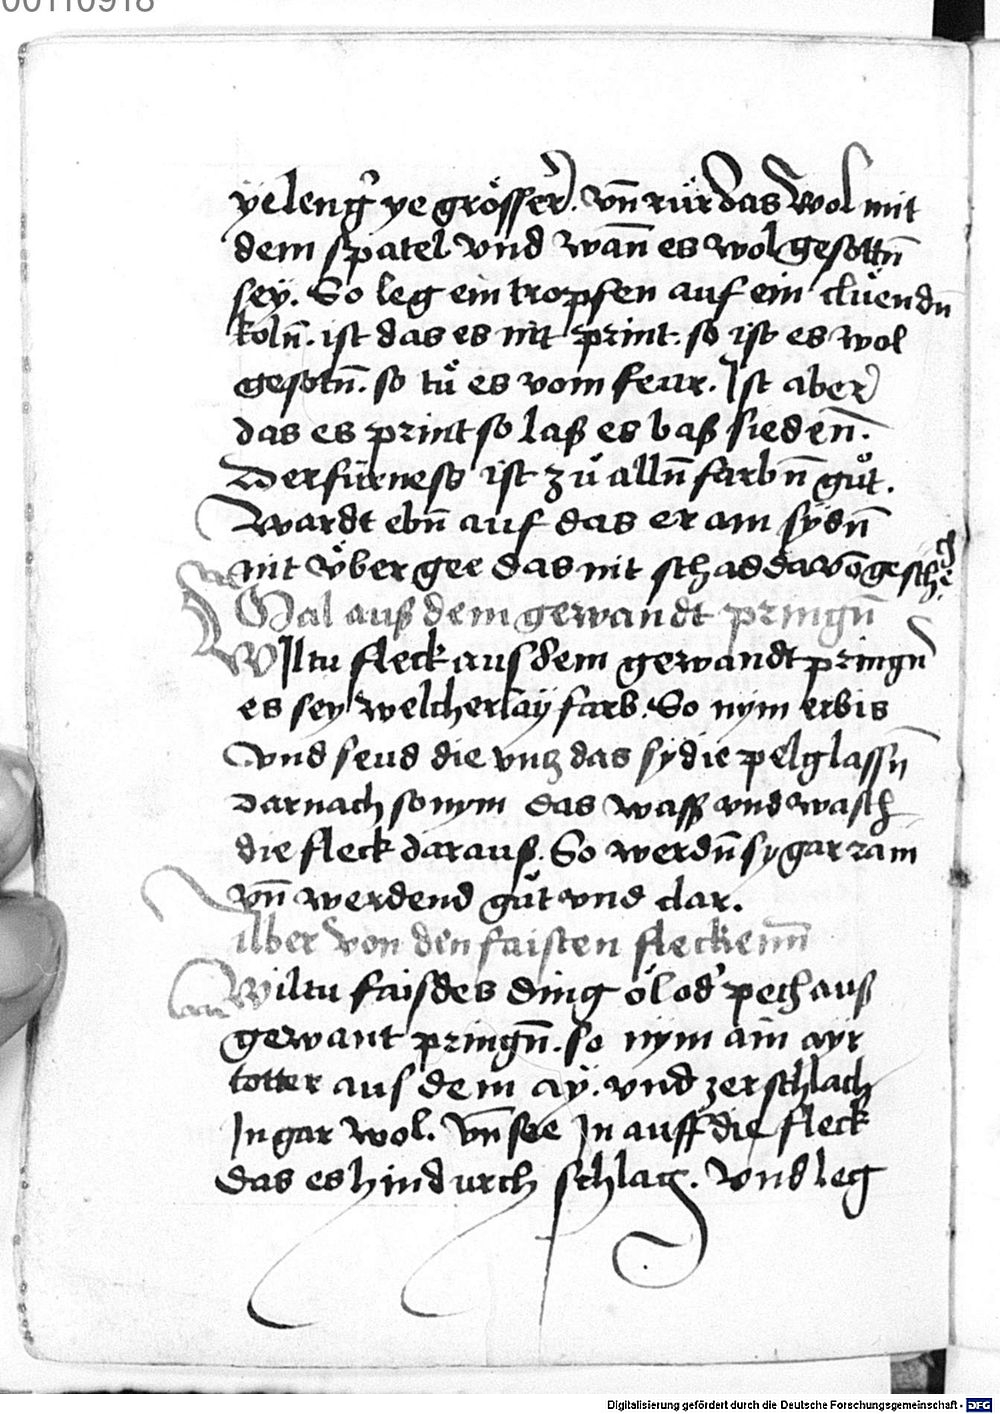 00110918
ÿe leng͛ ye grösser. vn̄ rür das wol mit
dem spatel vnd wan̄ es wol gesottn̄
seÿ. So leg ein tropfen auf ein cluͤendn̄
koln̄. ist das es nit print. so ist es wol
gesotn̄. so tuͤ es vom feur. Ist aber
das es print so laß es baß sieden̄.
Der fürness ist zuͤ alln̄ farbn̄ guͤt.
wardt ebn̄ auf das er am sÿdn̄
nit v̈ber gee das nit schad dauō gesch
Mal auß dem gewandt pringn̄
Wiltu fleck aus dem gewandt pringn̄
es sey welcherlaÿ farb. So nÿm erbis
vnd seud die vntz das sy die pelg lassn̄
Darnach so nym das wasß vnd wasch
die fleck darauß. So werdn̄ sy gar rain
vn̄ werdend guͤt vnd clar.
Aber von den faisten fleckenn̄
Wiltu faisdes ding öl od͛ pech auß
gewant pringn̄. so nÿm ain aÿr
totter aus dem aÿ. vnd zerschlach
In gar wol. Vn̄ see In auff die fleck
das es hindurch schlag. Vnd leg
Digitalisierung gefördert durch die Deutsche Forschungsgemeinschaft - DFG